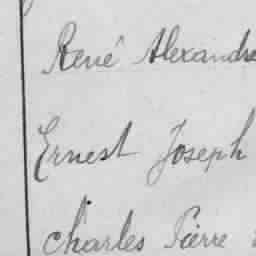 René Alexandre
Ernest Joseph
Charles Pierre